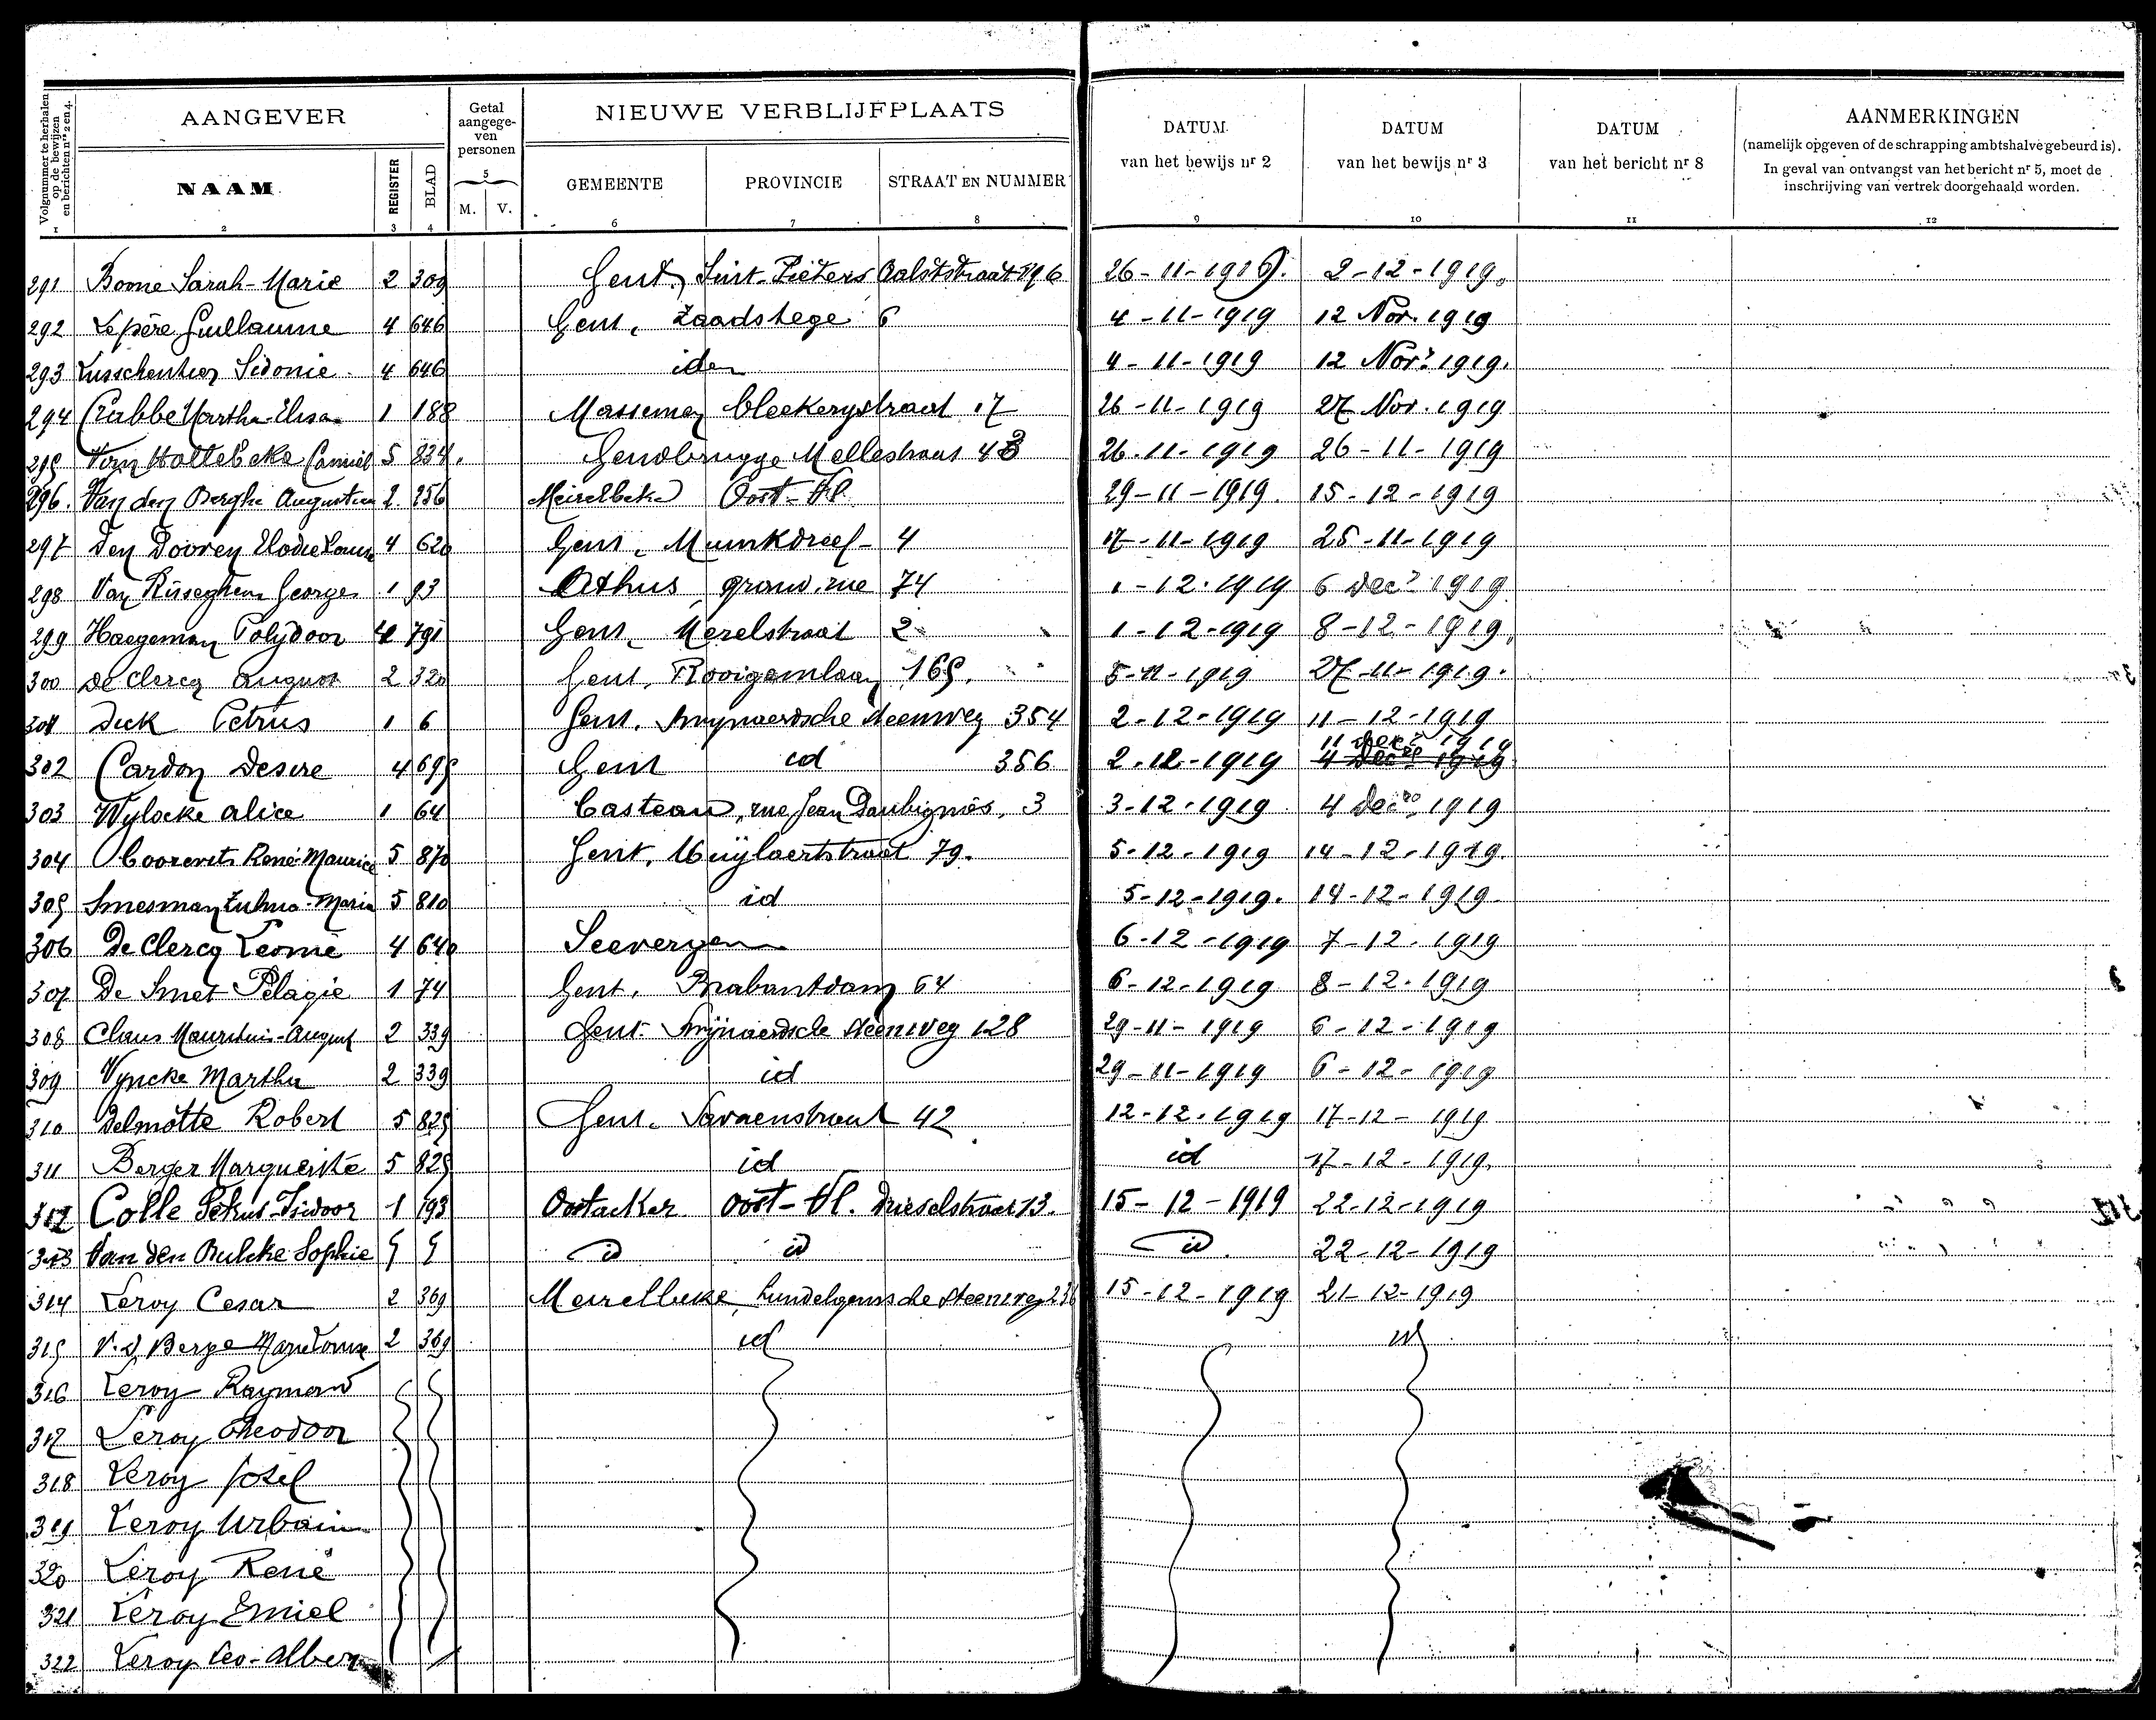 Volgnummer te herhalen op de bewijzen en berichten nrs 2 en 4.
AANGEVER
Getal aangege-ven personen
NIEUWE VERBLIJFPLAATS
DATUM van het bewijs nr 2
DATUM van het bewijs nr 3
DATUM van het bericht nr 8
AANMERKINGEN
(namelijk opgeven of de schrapping ambtshalve gebeurd is).
In geval van ontvangst van het bericht nr 5, moet de
inschrijving van vertrek doorgehaald worden.
NAAM REGISTER BLAD 5 M. V. GEMEENTE PROVINCIE STRAAT EN NUMMER
1 2 3 4 6 7 8 9 10 11 12
291 Bome Sarah-Marie 2 309 Gent, Sint-Pieters Aalststraat 196 26-11-1919. 2-12-1919.
292 Lepère Guillaume 4 646 Gent, Zaadstege 6 4-11-1919 12 Nov. 1919
293 Sidonie 4 646 idem 4-11-1919 12 Nov. 1919.
294 Crabbe Martha-Elisa 1 188 Massemen bleekerystraat 17 26-11-1919 27 Nov. 1919
295 Van Hollebeke Camiel 5 834. Gendbrugge Mellestraat 43 26-11-1919 26-11-1919
296. Van den Berghe Augustien 2. 256 Meirelbeke Oost-Vl. 29-11-1919. 15-12-1919
297 Den Dooven Elodie Louise 4 620 Gent, Muinkdreef - 4 17-11-1919 25-11-1919
298 Van Risseghem Georges 1 93 Athus, grand rue 74 1-12-1919 6 Dec. 1919
299 Haegeman Polydoor 4 791 Gent, Merelstraat 2 1-12-1919 8-12-1919.
300 De Clercq August 2 320 Gent, Rooigemlaan 165. 5-11-1919 27-11-1919.
301 Dick Petrus 1 6 Gent. Swynaerdsche steenweg 354 2-12-1919 11-12-1919
302 Cardon Desire 4 695 Gent id 356 2-12-1919 11 Dec. 1919
4 Dec. 1919
303 Wylocke Alice 1 64 Casteau, rue Jean Daubignès, 3 3-12-1919 4 Dec. 1919
304 Coorevits René-Maurice 5 870 Gent, Uuylaertstraat 79. 5-12-1919 14-12-1919.
305 Smesman Zulma-Maria 5 810 id 5-12-1919. 14-12-1919.
306 De Clercq Leonie 4 640 Seevergem 6-12-1919 7-12-1919
307 De Smet Pelagie 1 74 Gent, Brabantdam 64 6-12-1919 8-12-1919
308 Claus Mauritius-August 2 339 Gent Swijnaerdsche steenweg 128 29-11-1919 6-12-1919
309 Vyncke Martha 2 339 id 29-11-1919 6-12-1919
310 Delmotte Robert 5 825 Gent. Savaenstraat 42 12-12-1919 17-12-1919
311 Berger Marguerite 5 825 id id 17-12-1919.
312 Colle Petrus-Isidoor 1 193 Oostacker Oost-Vl. Drieselstraat 13. 15-12-1919 22-12-1919
313 Van den Bulcke Sophie id id id. 22-12-1919
314 Leroy Cesar 2 369 Meirelbeke, Hundelgemsche steenweg 236 15-12-1919 21-12-1919
315 V.d. Berge Marie Louise 2 369 id id
316 Leroy Raymond
317 Leroy Theodoor
318 Leroy Josef
319 Leroy Urbain
320 Leroy René
321 Leroy Emiel
322 Leroy Leo-Albert